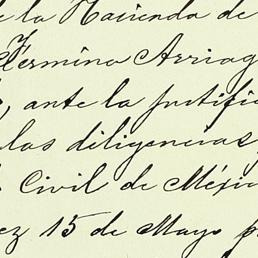 de la Hacienda de
Fermina Arriag
, ante la justifi
las diligencias
Civil de Méxic
ez 15 de Mayo p